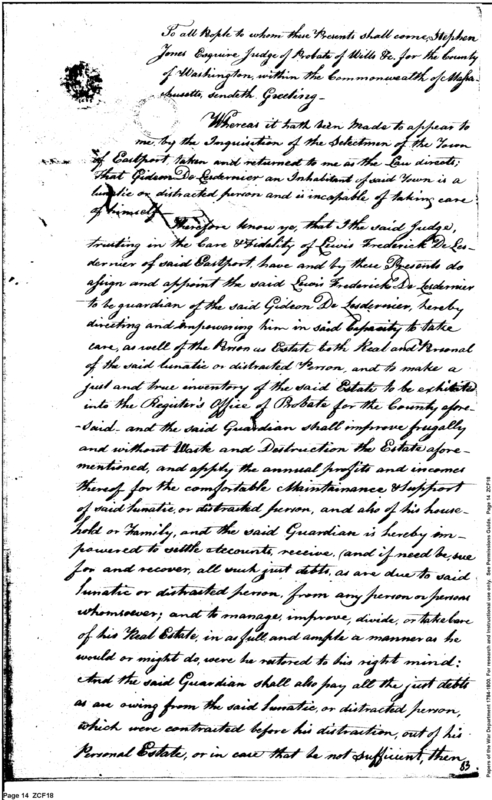 To all People to whom these Presents shall come, Stephen
Jones Esquire Judge of Probate of Wills &c. for the County
of Washington, within the Commonwealth of Massa-
chusetts, sendeth Greeting -
Whereas it hath been made to appear to
me, by the Inquisition of the Selectmen of the Town
of Eastport, taken and returned to me as the Law directs;
that Gideon De Lesdernier an Inhabitant of said Town is a
lunatic or distracted person and is incapable of taking care
of himself
Therefore know ye, that I the said Judge,
trusting in the Care & Fidelity of Lewis Frederick De Les-
dernier of said Eastport, have and by these Presents do
assign and appoint the said Lewis Frederick De Lesdernier
to be guardian of the said Gideon De Lesdernier, hereby
directing and empowering him in said Capacity to take
care, as well of the Person as Estate both Real and Personal
of the said lunatic or distracted Person, and to make a
just and true inventory of the said Estate to be exhibited
into the Register's Office of Probate for the County afore-
-said - and the said Guardian shall improve frugally
and without Waste and Destruction the Estate afore-
mentioned, and apply the annual profits and incomes
thereof for the comfortable Maintainance & Support
of said lunatic, or distracted person, and also of his house-
hold or Family, and the said Guardian is hereby im-
powered to settle accounts, receive, (and if need be, sue
for and recover, all such just debts, as are due to said
lunatic or distracted person, from any person or persons
whomsoever; and to manage, improve, divide, or take care
of his Real Estate, in as full and ample a manner as he
would or might do, were he restored to his right mind:
And the said Guardian shall also pay all the just debts
as are owing from the said lunatic, or distracted person,
which were contracted before his distraction, out of his
Personal Estate, or in case that be not sufficient, then
83
Page 14 ZCF18
Papers of the War Department 1784-1800. For research and instructional use only. See Permissions Guide. Page 14 ZCF18